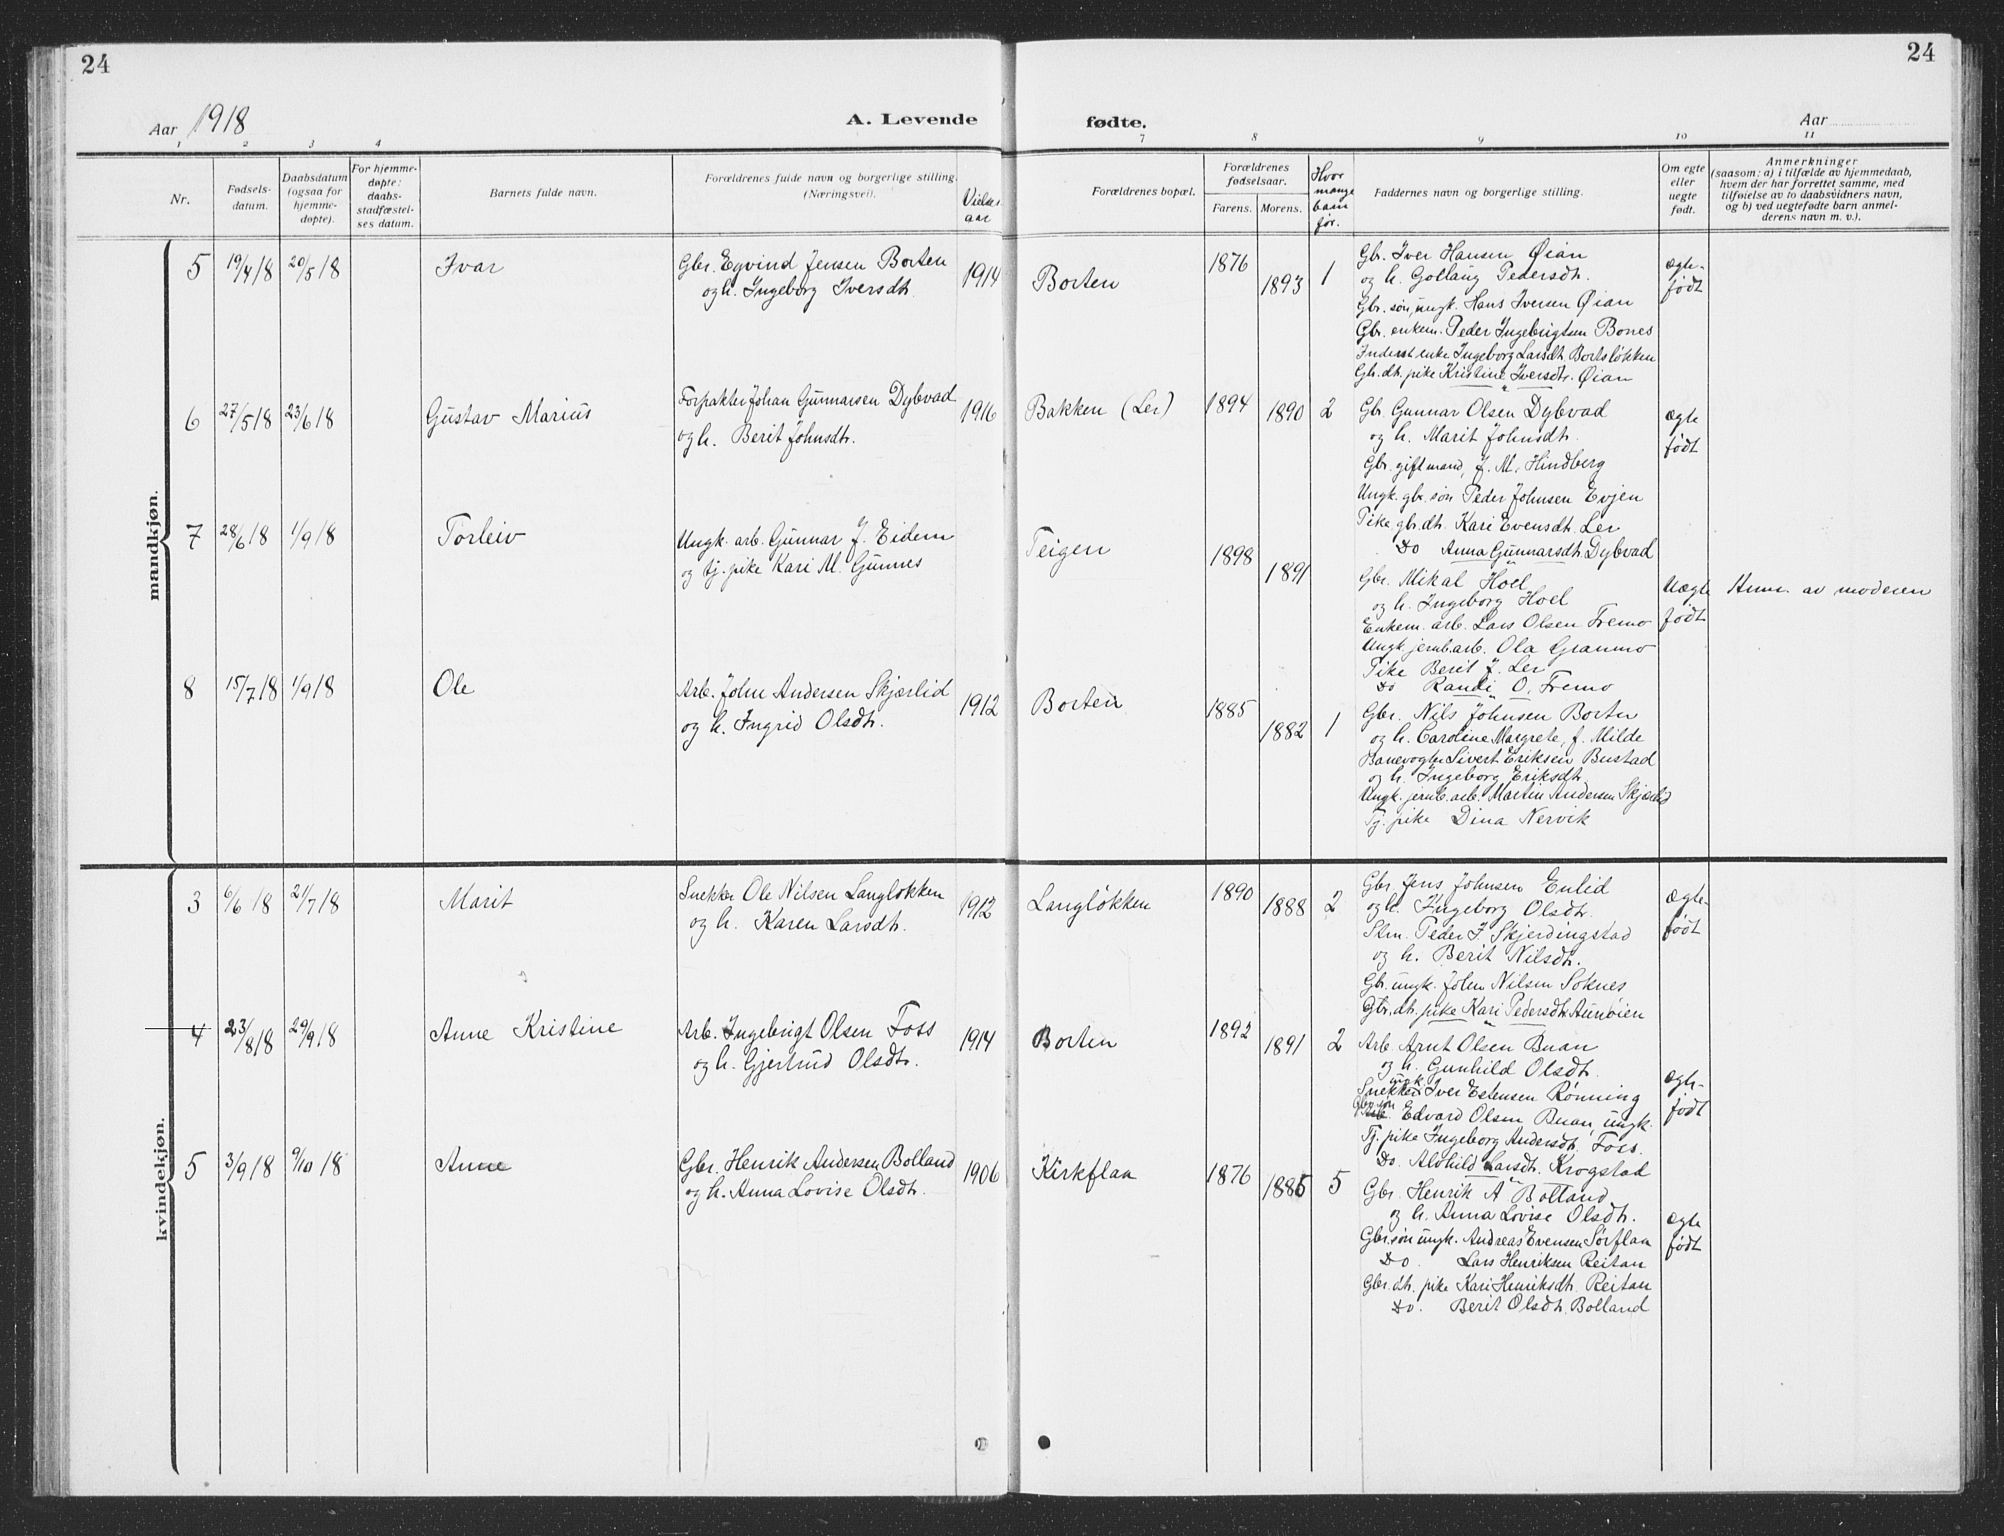 24
24
Aar 1918
A. Levende
fødte.
Aar
1
2
3
4
7
8
9
10
11
Nr.
Fødsels-
datum.
Daabsdatum
(ogsaa for
hjemme-
døpte).
For hjemme-
døpte:
daabs-
stadfæstel-
ses datum.
Barnets fulde navn.
Forældrenes fulde navn og borgerlige stilling.
(Næringsvei).
Vielses
aar
Forældrenes bopæl.
Forældrenes
fødselsaar.
Farens.
Morens.
Hvor
mange
barn
før.
Faddernes navn og borgerlige stilling.
Om egte
eller
uegte
født.
Anmerkninger
(saasom: a) i tilfælde av hjemmedaab,
hvem der har forrettet samme, med
tilføielse av to daabsvidners navn,
og b) ved uegtefødte barn anmel-
derens navn m. v.).
mandkjøn.
5
19/4 18
20/5 18
Ivar
Gbr. Eyvind Jensen Borten
og h. Ingeborg Iversdt.
1914
Borten
1876
1893
1
Gbr. Iver Hansen Øian
og h. Gollaug Pedersdt.
Gbr. søn, ungk. Hans Iversen Øian
Gbr. enkem. Peder Ingebrigtsen Bones
Inderst enke Ingeborg Larsdt. Bortsløkken
Gbr. dt. pike Kristine Iversdt. Øian
ægte-
født
6
27/5 18
23/6 18
Gustav Marius
Forpakter Johan Gunnarsen Dybvad
og h. Berit Johnsdt.
1916
Bakken (Ler)
1894
1890
2
Gbr. Gunnar Olsen Dybvad
og h. Marit Johnsdt.
Gbr. gift mand, J. M. Hindberg
Ungk. gbr. søn Peder Johnsen Evjen
Pike gbr. dt. Kari Evensdt. Ler
Do Anna Gunnarsdt. Dybvad
ægte
født
7
28/6 18
1/9 18
Torleiv
Ungk. arb. Gunnar J. Eidem
og tj. pike Kari M. Gunnes
Teigen
1898
1891
Gbr. Mikal Hoel
og h. Ingeborg Hoel
Enkem. arb. Lars Olsen Fremo
Ungk. jernb.arb. Ola Granmo
Pike Berit J. Ler
Do Randi O. Fremo
Uægte
født
Anm. av moderen
8
15/7 18
1/9 18
Ole
Arb. John Andersen Skjærlid
og h. Ingrid Olsdt.
1912
Borten
1885
1882
1
Gbr. Nils Johnsen Borten
og h. Caroline Margrete, f. Milde
Banevogter Sivert Eriksen Bustad
og h. Ingeborg Eriksdt.
Ungk. jernb. arb. Martin Andersen Skjærlid
Tj. pike Dina Nervik
kvindekjøn.
3
6/6 18
21/7 18
Marit
Snekker Ole Nilsen Langløkken
og h. Karen Larsdt.
1912
Langløkken
1890
1888
2
Gbr. Jens Johnsen Enlid
og h. Ingeborg Olsdt.
Slm. Peder J. Skjerdingstad
og h. Berit Nilsdt.
Gbr. ungk. John Nilsen Søknes
Gbr. dt. pike Kari Pedersdt.
ægte-
født
4
23/8 18
29/9 18
Anne Kristine
Arb. Ingebrigt Olsen Foss
og h. Gjertrud Olsdt.
1914
Borten
1892
1891
2
Arb. Arnt Olsen Buan
og h. Gunhild Olsdt.
ungk.
Snekker Iver Estensen Rønning
Gbr. søn Edvard Olsen Buan, ungk.
Tj. pike Ingeborg Andersdt. Foss.
Do. Alvhild Larsdt. Krogstad
ægte-
født
5
3/9 18
9/10 18
Anne
Gbr. Henrik Andersen Bolland
og h. Anna Lovise Olsdt.
1906
Kirkflaa
1876
1885
5
Gbr. Henrik A Bolland
og h. Anna Lovise Olsdt.
Gbr. søn ungk. Andreas Evensen Sørflaa
Do. Lars Henriksen Reitan
Gbr. dt. pike Kari Henriksdt. Reitan
Do. Berit Olsdt. Bolland
ægte
født